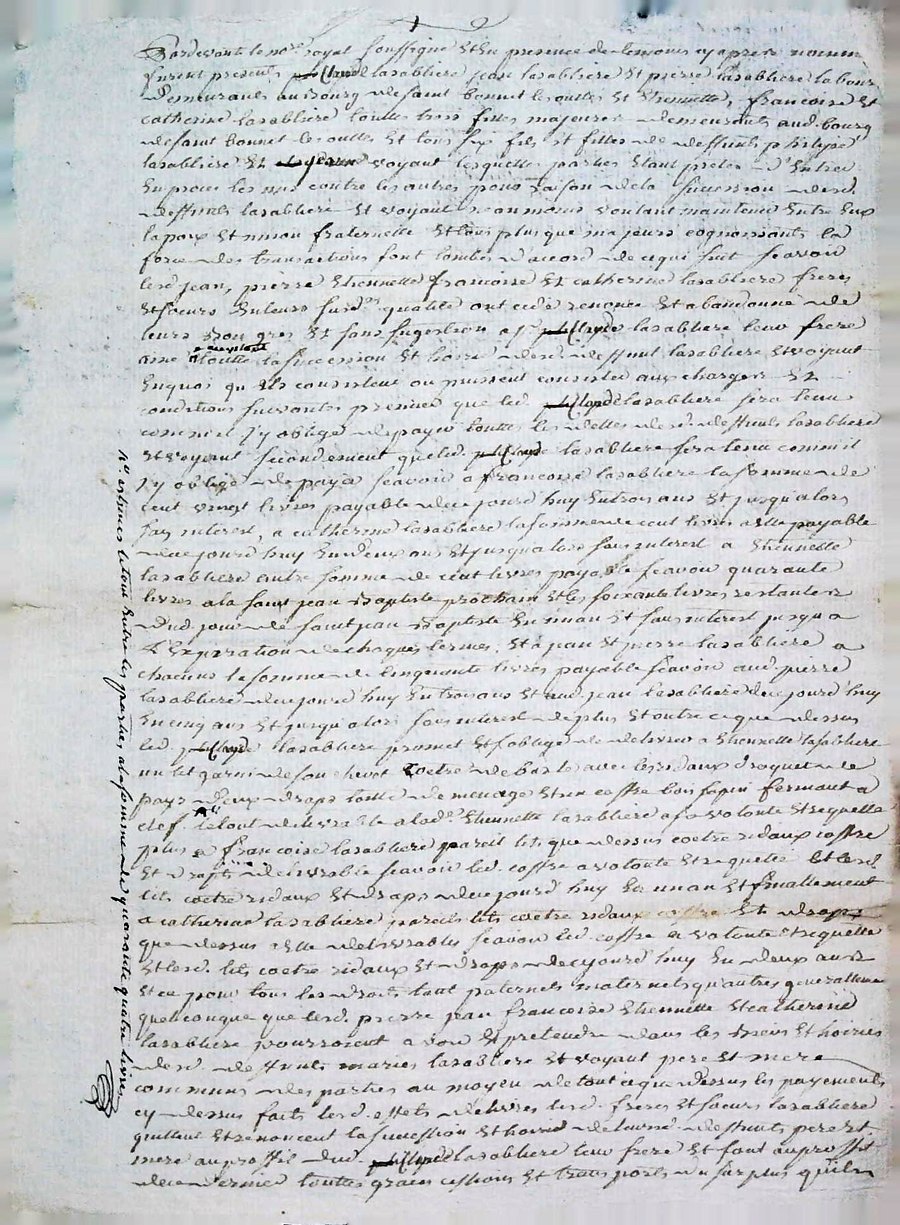 Pardevant le no.re royal soussigné et en presence des temoins cy apres nommés
furent presents Claude lasabliere jean lasabliere et pierre lasabliere
demeurants au bourg de saint bonnet les oulles et Etiennette, francoise et
catherine lasabliere touttes trois filles majeures demeurants aud. bourg
de saint bonnet les oulles et tous six fils et filles de deffunts
lasabliere et voyant lesquelles parties etant pretes d'entrer
en proces les uns contre les autres pour raison de la succession desd.
deffunts lasabliere et voyant neanmoins voulant maintenir entre eux
la paix et union fraternelle et tous plus que majeurs cognoissants la
force des transactions sont tombés d'accord de ce qui suit scavoir
lesd jean, pierre Etiennette francoise et catherine lasabliere freres
et soeurs en leurs susd. qualité ont cedé renoncé et abandonné de
leurs bon gres et sans sugestion a Claude lasabliere leur frere
ainé toutte la succession et hoirie desd. deffunt lasabliere et voyant
en quoi qu'ils consistent ou puissent consister aux charges et
conditions suivantes premier que led. Claude lasabliere sera tenu
comme il s'y oblige de payer touttes les dettes desd. deffunts lasabliere
et voyant secondement que led. Claude lasabliere sera tenu comm'il
s'y oblige de payer scavoir a francoise lasabliere la somme de
cent vingt livres payable de ce jourd huy en trois ans et jusqu'alors
sans interest, a catherine lasabliere la somme de cent livres a elle payable
de ce jourd huy en deux ans et jusqu'alors sans interest a Etiennette
lasabliere autre somme de cent livres payable scavoir quarante
livres a la saint jean Baptiste prochain et les soixante livres restantes
dud. jour de saint jean Baptiste en un an et sans interest jusqu'a
l'Expiration de chaques termes, et a jean et pierre lasabliere a
chacuns la somme de cinquante livres payable scavoir aud. pierre
lasabliere de ce jourd huy en trois ans et aud. jean lasabliere de ce jourd huy
en cinq ans et jusqu'alors sans interest de plus et outre ce que dessus
led. Claude lasabliere promet et s'oblige de delivrer a Etiennette lasabliere
un lit garni de son chevet coetre de bale avec les ridaux droguet de
pays deux draps toille de menage et un coffre bois sapin fermant a
clef le tout delivrable a lad. Etiennette lasabliere a sa volonté et requette
plus a francoise lasabliere pareil lit que dessus coetre ridaux coffre
et draps delivrable scavoir led. coffre a volonté et requette et lesd.
lits coetre ridaux et draps de ce jourd huy en un an et finallement
a catherine lasabliere pareils lits coetre ridaux coffre et draps
que dessus a elle delivrables scavoir led. coffre a volonté et requette
et lesd. lits coetre ridaux et draps de ce jourd huy en deux ans
et ce pour tous les droits tant paternels maternels qu'autres generallement
quelconque que lesd. pierre jean francoise Etiennette et catherine
lasabliere pourroient avoir et pretendre dans les biens et hoiries
desd. deffunts mariés lasabliere et voyant pere et mere
communs des parties au moyen de tout ce que dessus les payements
cy dessus faits lesd. effets delivrés lesd. freres et soeurs lasabliere
quittent et renoncent la succession et hoirie de leurs deffunts pere et
mere au proffit dud. Claude lasabliere leur frere et font au proffit
de ce dernier touttes graces cessions et transports du surplus qu'ils
estimés le tout entre les parties a la somme de quarante quatre livres